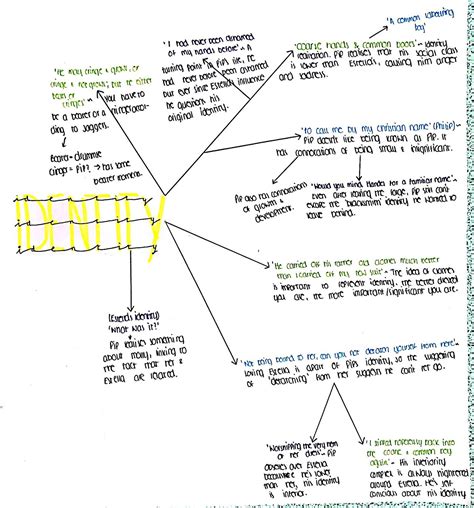 'A common labouring
boy'
'I had never been ashamed
of my hands before' - A
turning point in Pip's life, he
had never been ashamed
but ever since Estella's influence
he questions his
original identity.
'coarse hands & common boots' - identity
realisation. Pip realises that his social class
is lower than Estella's, causing him anger
and sadness.
'He may cringe & growl, or
cringe & not growl; but he either
beats or
cringes' -
you have to
be a beater or a cringer accor-
ding to Jaggers.
Beater = drummle
cringe = Pip? → has some
beater moments.
'to call me by my christian name' (Philip) -
Pip doesn't like being known as Pip. It
has connotations of being small & insignificant.
Pip also has connotations
of growth &
development.
'Would you mind Handel for a familiar name' -
even after leaving the forge, Pip still can't
evade the 'blacksmith' identity he wanted to
leave behind.
IDENTITY
'He carried off his rather old clothes much better
than I carried off my new suit' - The idea of clothes
is important to represent identity, the better dressed
you are, the more important/significant you are.
(Estella's identity)
'What was it?'
Pip realises something
about Molly, linking to
the fact that her &
Estella are related.
'Not being bound to her, can you not detach yourself from her?' -
loving Estella is apart of Pip's identity, so the suggestion
of 'detatching' from her suggest he can't let go.
'Worshipping the very hem
of her dress' - Pip
obsesses over Estella
because he's lower
than her, his identity
is inferior.
'I slipped hopelessly back into
the coarse & common boy
again' - His inferiority
complex is always heightened
around Estella. He's self
conscious about his identity